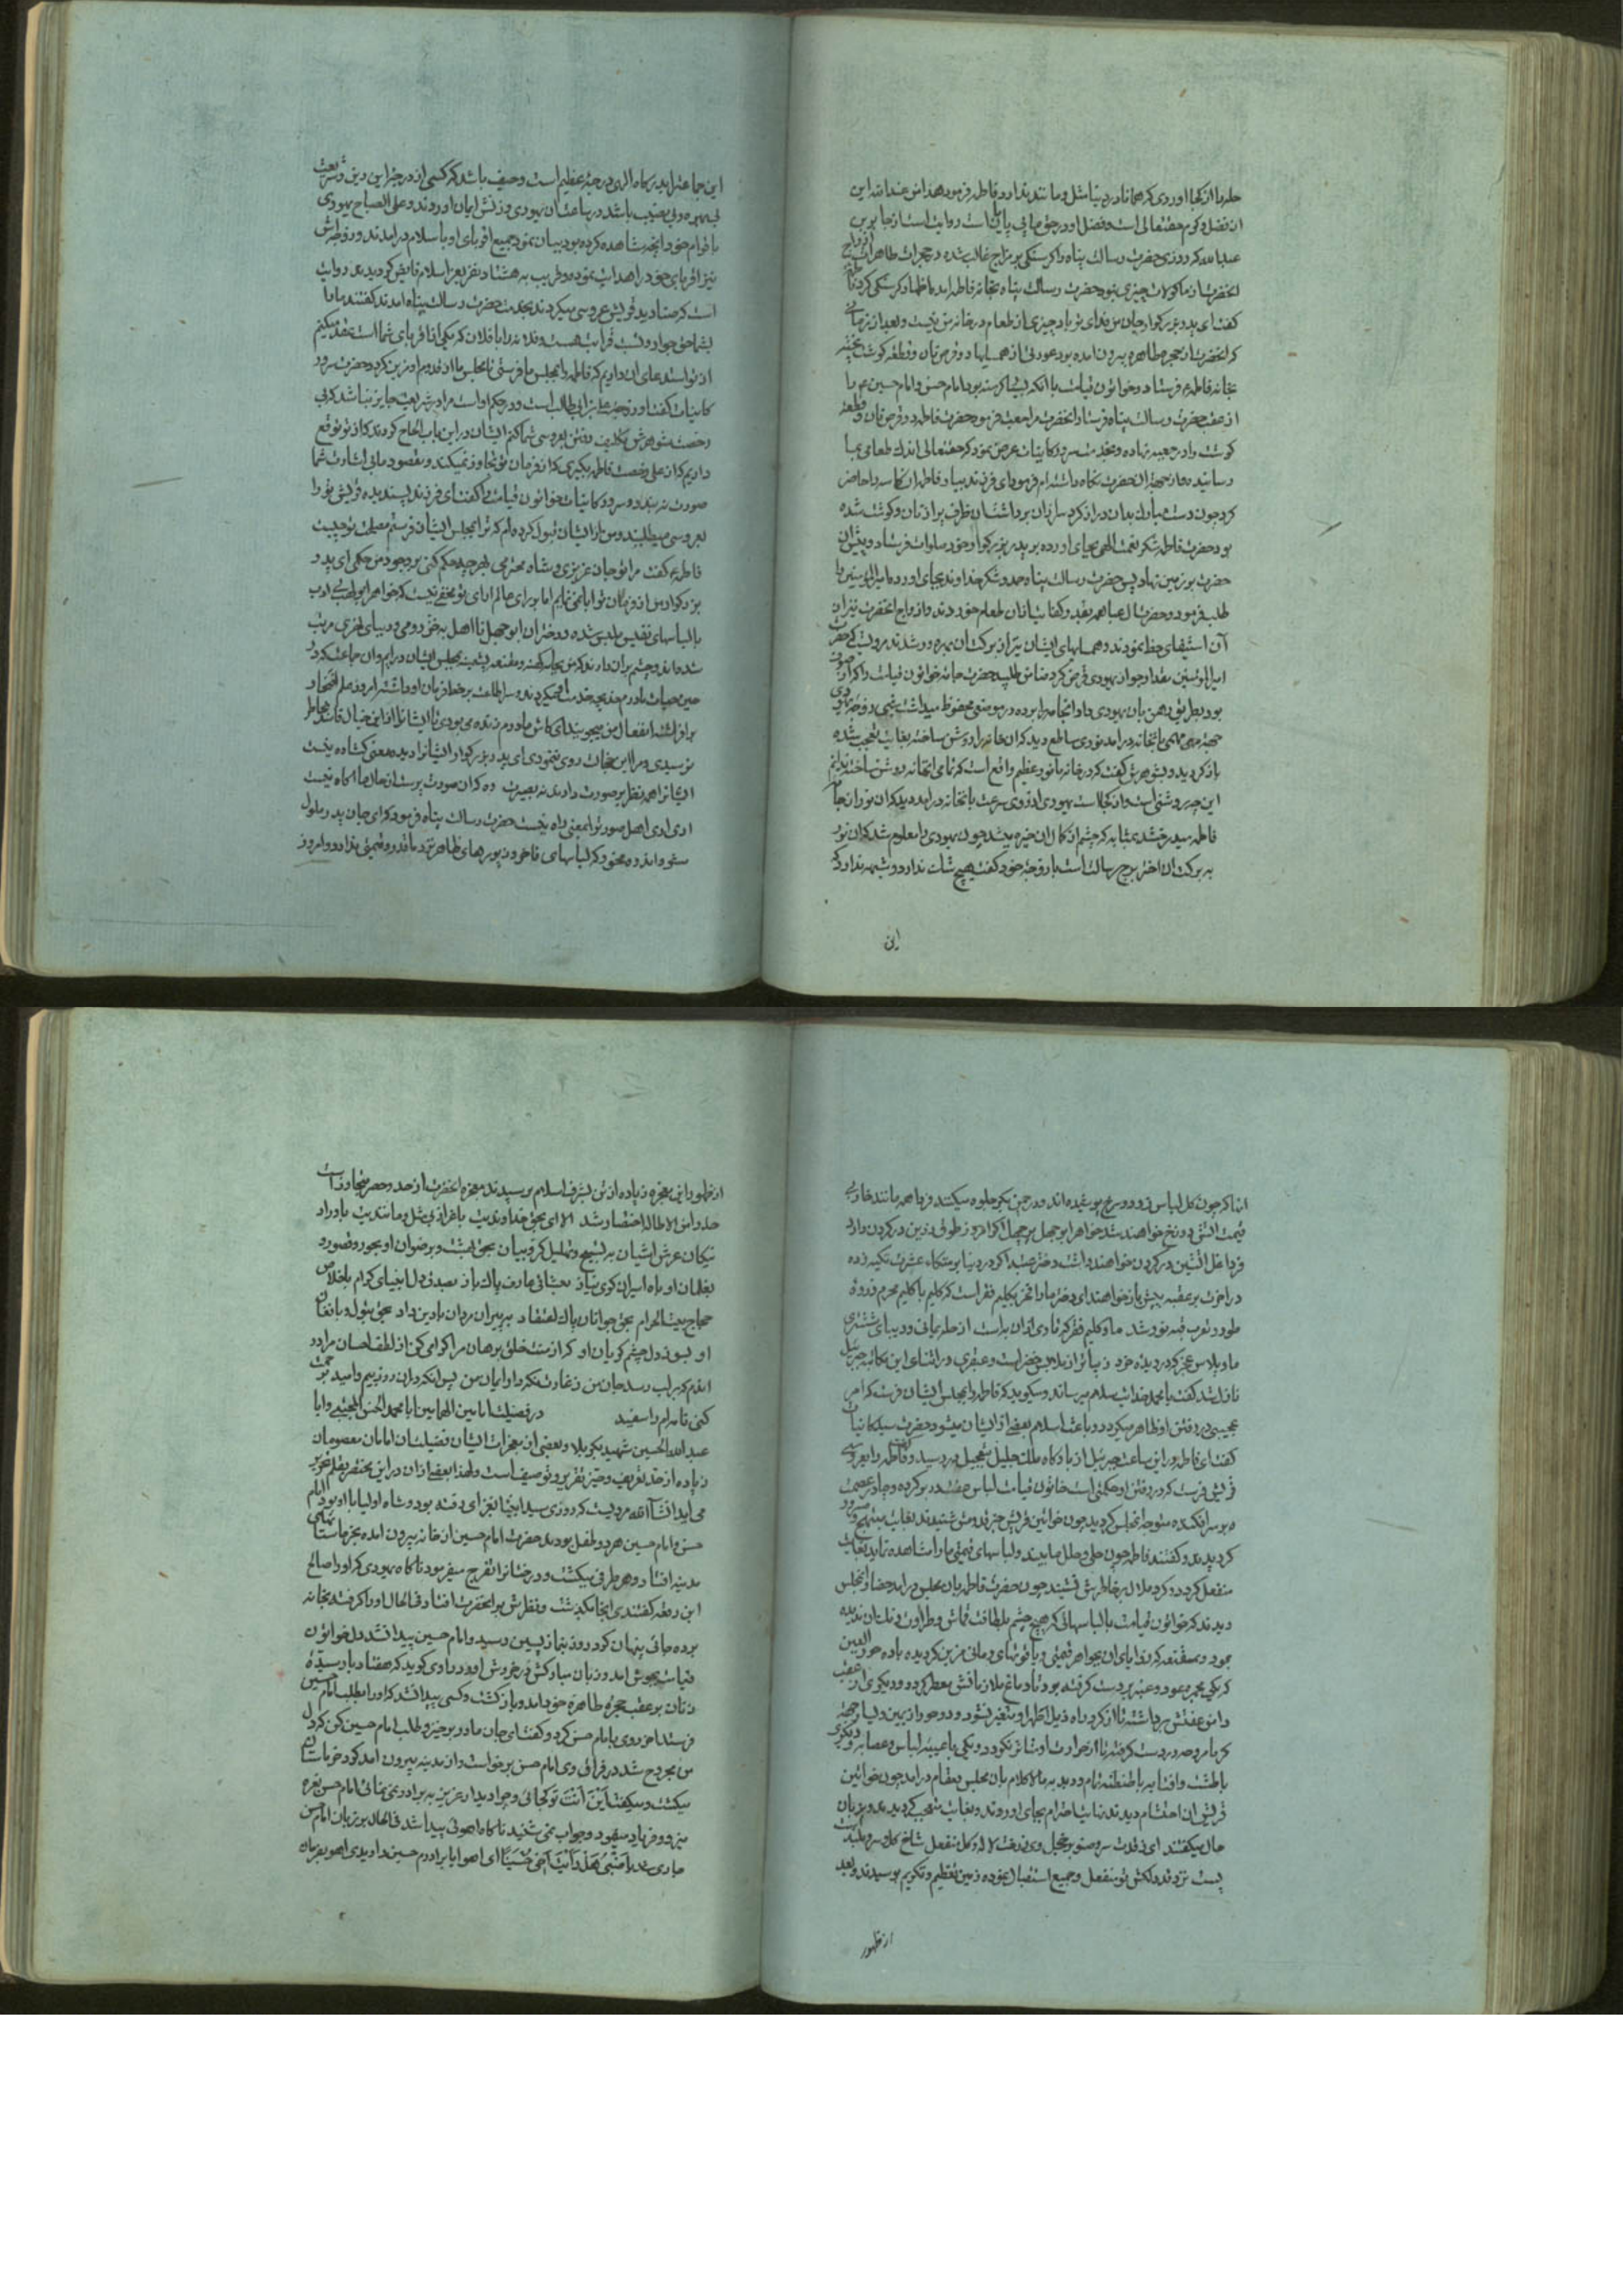 حله را از کجا اوردی که همانا در دنیا مثل و مانند ندارد فاطمه فرمود هذا من عند الله این
از فضل و کرم حقتعالی است و فضل او در حق ما بی پایان است روایت است از جابر بن
عبدالله که روزی حضرت رسالت پناه را کرسنکی بر مزاج غالب شده در حجرات طاهرات ازواج
انحضرت از ماکولات چیزی نبود حضرت رسالت پناه بخانه فاطمه امد و اظهار کرسنکی کرد فاطمه
کفت ای پدر بزرکوار جان من فدای تو باد چیزی از طعام در خانه من نیست و بعد از زمانی
که انحضرت از حجره طاهره بیرون امده بود عورتی از همسایها دو قرص نان و قطعه کوشت پخته
بخانه فاطمه فرستاد و خواتون قیامت با انکه بسیار کرسنه بود امام حسن و امام حسین را
از عقب حضرت رسالت پناه فرستاد انحضرت مراجعت فرمود حضرت فاطمه دو قرص نان و قطعه
کوشت را در جعبه نهاده و بخدمت سرور کاینات عرض نمود که حقتعالی اندك طعامی بما
رسانیده و از جهة ان حضرت نکاه داشته ام فرمود ای فرزند بیار فاطمه ان کاسه را حاضر
کرد چون دست مبارك بدان دراز کرد سر از ان برداشت ان ظرف پر از نان و کوشت شده
بود حضرت فاطمه شکر نعمت الهی بجای اورده بر پدر بزرکوار خود صلوات فرستاد و پیش ان
حضرت بر زمین نهاد پس حضرت رسالت پناه حمد و شکر خداوند بجای اورد و امیرالمؤمنین را
طلب فرمود و حضرت ال عبا همه بقدر کفایت از ان طعام خوردند و ازواج انحضرت نیز از
آن استیفای حظ نمودند و همسایهای ایشان نیز از برکت ان بهره ور شدند مرویست که حضرت
امیرالمؤمنین مقدار جو از یهودی قرض کرد ضامن طلبید حضرت جامه خواتون قیامت را که از صوف
بود بطریق رهن بان یهودی داد انجامه را برده در موضعی محفوظ میداشت شبی زوجه یهودی
جهة مهمی بانخانه درامد نوری ساطع دید که ان خانه را روشن ساخته بغایت تعجب شده
باز کردید و بشوهرش کفت که در خانه ما نور عظیم واقع است که تمامی انخانه روشن ساخته ندانم
این چه روشنی است و از کجا است یهودی از روی سرعت بانخانه درامد دید که ان نور از جامه
فاطمه میدرخشد بمثابه که چشم از کمال ان خیره میشد چون یهودی را معلوم شد که ان نور
به برکت ان اختر برج رسالت است با زوجه خود کفت هیچ شك ندارد و شبهه ندارد که
این
این جماعة را بدرکاه الهی درجه عظیم است و حیف باشد که کسی از درجه این دین و شریعت
بی بهره و بی نصیب باشد در ساعت ان یهودی و زنش ایمان اوردند و علی الصباح یهودی
با قوام خود انچه مشاهده کرده بود بیان نمود جمیع اقربای او باسلام درامدند و زوجه اش
نیز اقربای خود را هدایت نمود و قریب به هشتاد نفر بعز اسلام فایض کردیدند روایت
است که صنادید قریش عروسی میکردند بخدمت حضرت رسالت پناه امدند کفتند ما را
بشما حق جوار و نسب قرابت هست و فلانه را با فلان که یکی از اقربای شما است عقد میکنم
از تو استدعای ان داریم که فاطمه را بمجلس ما فرستی تا مجلس ما از قدوم او زین کردد حضرت سرور
کاینات کفت او زوجه علی بن ابی طالب است و در حکم او است مرا در شریعت جایز نباشد که بی
رخصت شوهرش تکلیف رفتن بعروسی شما کنم ایشان در این باب الحاح کردند که از تو توقع
داریم که از علی رخصت فاطمه بکیری که از فرمان تو تجاوز نمیکند و مقصود ما بی اشارت شما
صورت نه بندد سرور کاینات خواتون قیامت را کفت ای فرزند پسندیده قریش تو را
بعروسی میطلبند و من از ایشان قبول کرده ام که ترا بمجلس ایشان فرستم مصلحت تو چیست
فاطمه کفت مرا تو جان عزیزی و شاه محترمی بهر چه حکم کنی بر وجود من حکمی ای پدر
بزرکوار من از فرمان تو ابا نمی نمایم اما بر رای عالم ارای تو مخفی نیست که خواهر ابولهب بی ادب
بالباسهای نفیس ملبس شده و دختران ابوجهل نا اهل به خز رومی و دیبای اخری مزین
شده اند و چشم بران دارند که من بجامه کهنه و مقنعه پشمینه بمجلس ایشان درایم و ان جماعت که در
حین حیات مادرم خدیجه خدمت او میکردند و سر اطاعت بر خط فرمان او داشتند امروز علم افتخار
برافراشته انفعال من میجویند ای کاش مادرم زنده می بودی تا ایشانرا از این خیال فاسد بخاطر
نرسیدی و مرا این خجالت روی ننمودی ای پدر بزرکوار ایشانرا دیده معنی کشاده نیست
ایشانرا همه نظر بر صورت دارند نه بصیرت ده که ان صورت پرست از حال ما اکاه نیست
اری اری اهل صورت را بمعنی راه نیست حضرت رسالت پناه فرمود که ای جان پدر ملول
مشو و اندوه مخور که لباسهای فاخر و زیورهای ظاهر نزد ما قدر و قیمتی ندارد و امروز
انها که چون کل لباس زرد و سرخ پوشیده اند و در چمن تکبر جلوه میکنند فردا همه مانند خار بی
قیمت اتش دوزخ خواهند شد خواهر ابوجهل پر جهل اکر امروز طوق زرین در کردن دارد
فردا غل اتشین در کردن خواهند داشت و دختر عتبه اکر در دنیا بر متکاء عشرت تکیه زده
در اخرت بر عقبه پیش باز خواهند ای دختر ما را فخر بکلیم فقر است که کلیم با کلیم محرم ذروه
طور و بقرب قبه نور شد ما و کلیم فقر که تار وی از ان به است از حله یمانی و دیبای ششتری
ما و پلاس عجز که در دیده خرد زیباتر از ملابس خضر است و عبقری در اثنای این مکالمه جبرئیل
نازل شد کفت یا محمد خدایت سلام میرساند و میکوید که فاطمه را بمجلس ایشان فرست که امر
عجیبی در رفتن او ظاهر میکردد و باعث اسلام بعضی از ایشان میشود حضرت سید کاینات
کفت ای فاطمه در این ساعت جبرئیل از بارکاه ملك جلیل بتعجیل در رسید و کفت فاطمه را بعروسی
قریش فرست که در رفتن او حکمتی است خاتون قیامت لباس عفت در بر کرده و چادر عصمت
بر سر افکنده متوجه انمجلس کردید چون خواتین قریش خبر قدومش شنیدند بغایت مبتهج و مسرور
کردیدند و کفتند فاطمه چون حلی و حلل ما بیند و لباسهای قیمتی ما را مشاهده نماید بغایت
منفعل کردد و کرد ملال بر خاطرش نشیند چون حضرت فاطمه بان مجلس درامد حضار انمجلس
دیدند که خواتون قیامت با لباسهائی که هیچ چشم بلطافت قماش و طراوت رنك ان ندیده
بود و مقنعه که زوایای ان بجواهر قیمتی و یاقوتهای رمانی مزین کردیده باده حور العین
که یکی مجمره عود و عنبر بر دست کرفته بود تا دماغ ملا از نافش معطر کردد و دیکری از عقب
دامن عفتش برداشته تا از کرد راه ذیل اطهر او متغیر نشود و دو حور از یمین و یسار جهة
باطشت و افتابه با طنطنه تمام و دبدبه مالا کلام بان مجلس بمقام درامد چون خواتین
قریش ان احتشام دیدند نهایت احترام بجای اوردند و بغایت متعجب کردیدند و بزبان
حال میکفتند ای ز قدت سرو صنوبر خجل وی ز رخت لاله و کل منفعل شاخ کل و سرو بلندت
پست نزد قد دلکش تو منفعل و جمیع استقبال نموده زمین تعظیم و تکریم بوسیدند و بعد
از ظهور
از ظهور این معجزه زیاده از تن بشرف اسلام برسیدند معجزه انحضرت از حد و حصر متجاوز است
الا ای بحق خداوندیت باعزاز بی مثل و مانندیت باوراد
نیکان عرش اشیان به تسبیح و تهلیل کروبیان بحق بهشت و برضوان او بحور و قصور و
بغلمان او بصدق دل انبیای کرام باخلاص
حجاج بیت الحرام بحق جوانان پاك اعتقاد به پیران مردان با دین و داد بحق بتول و بافغان
او بسوز دل و چشم کریان او که از منت خلق برهان مرا کرامی کن از لطف احسان مرا در
اندم که بر لب رسد جان من ز غارت نکه دار ایمان من پس انکه در ان روز بیم و امید چو رحمت
کنی نامه ام را سفید در فضیلت امامین الهمامین ابا محمد الحسن المجتبی و ابا
عبدالله الحسین شهید بکربلا و بعضی از معجزات ایشان فضیلت ان امامان معصومان
زیاده از حد تعریف و حیز تقریر و توصیف است و لهذا بعضی از ان در این مختصر بقلم تحریر
می اید انشآالله مرویست که روزی سید انبیا بغزای رفته بود و شاه اولیا با او بود و امام
حسن و امام حسین هر دو طفل بودند حضرت امام حسین از خانه بیرون امده بخرماستانهای
مدینه افتاد و هر طرفی میکشت و درختانرا تفرج میفرمود ناکاه یهودی که او را صالح
ابن رقعه کفتندی انجا بکذشت و نظرش بر انحضرت افتاد فی الحال او را کرفت بخانه
برده جائی پنهان کرد و روز بنماز پسین رسید و امام حسین پیدا نشد دل خواتون
قیامت بجوش امد و زبان مبارکش در خروش اورد راوی کوید که هفتاد بار سیدة
زنان بر عقب حجره طاهره خود امد و باز کشت و کسی پیدا نشد که او را بطلب امام حسین
فرستد اخر روی با امام حسن کرد و کفت ای جان مادر برخیز و طلب امام حسین کن که دل
من مجروح شد در فراق وی امام حسن برخواست و از مدینه بیرون امد کرد خرماستان
میکشت و میکفت اَیْنَ اَنْتَ تو کجائی و چرا دیدار عزیز به برادر نمی نمائی امام حسن نعره
میزد و فریاد مینمود و جواب نمی شنید ناکاه اهوئی پیدا شد فی الحال بر زبان امام حسن
جاری شد یا ظَبْیُ هَلْ رَأَیْتَ اَخی حُسَیْنًا ای اهو ایا برادرم حسین را دیدی اهو بفرمان